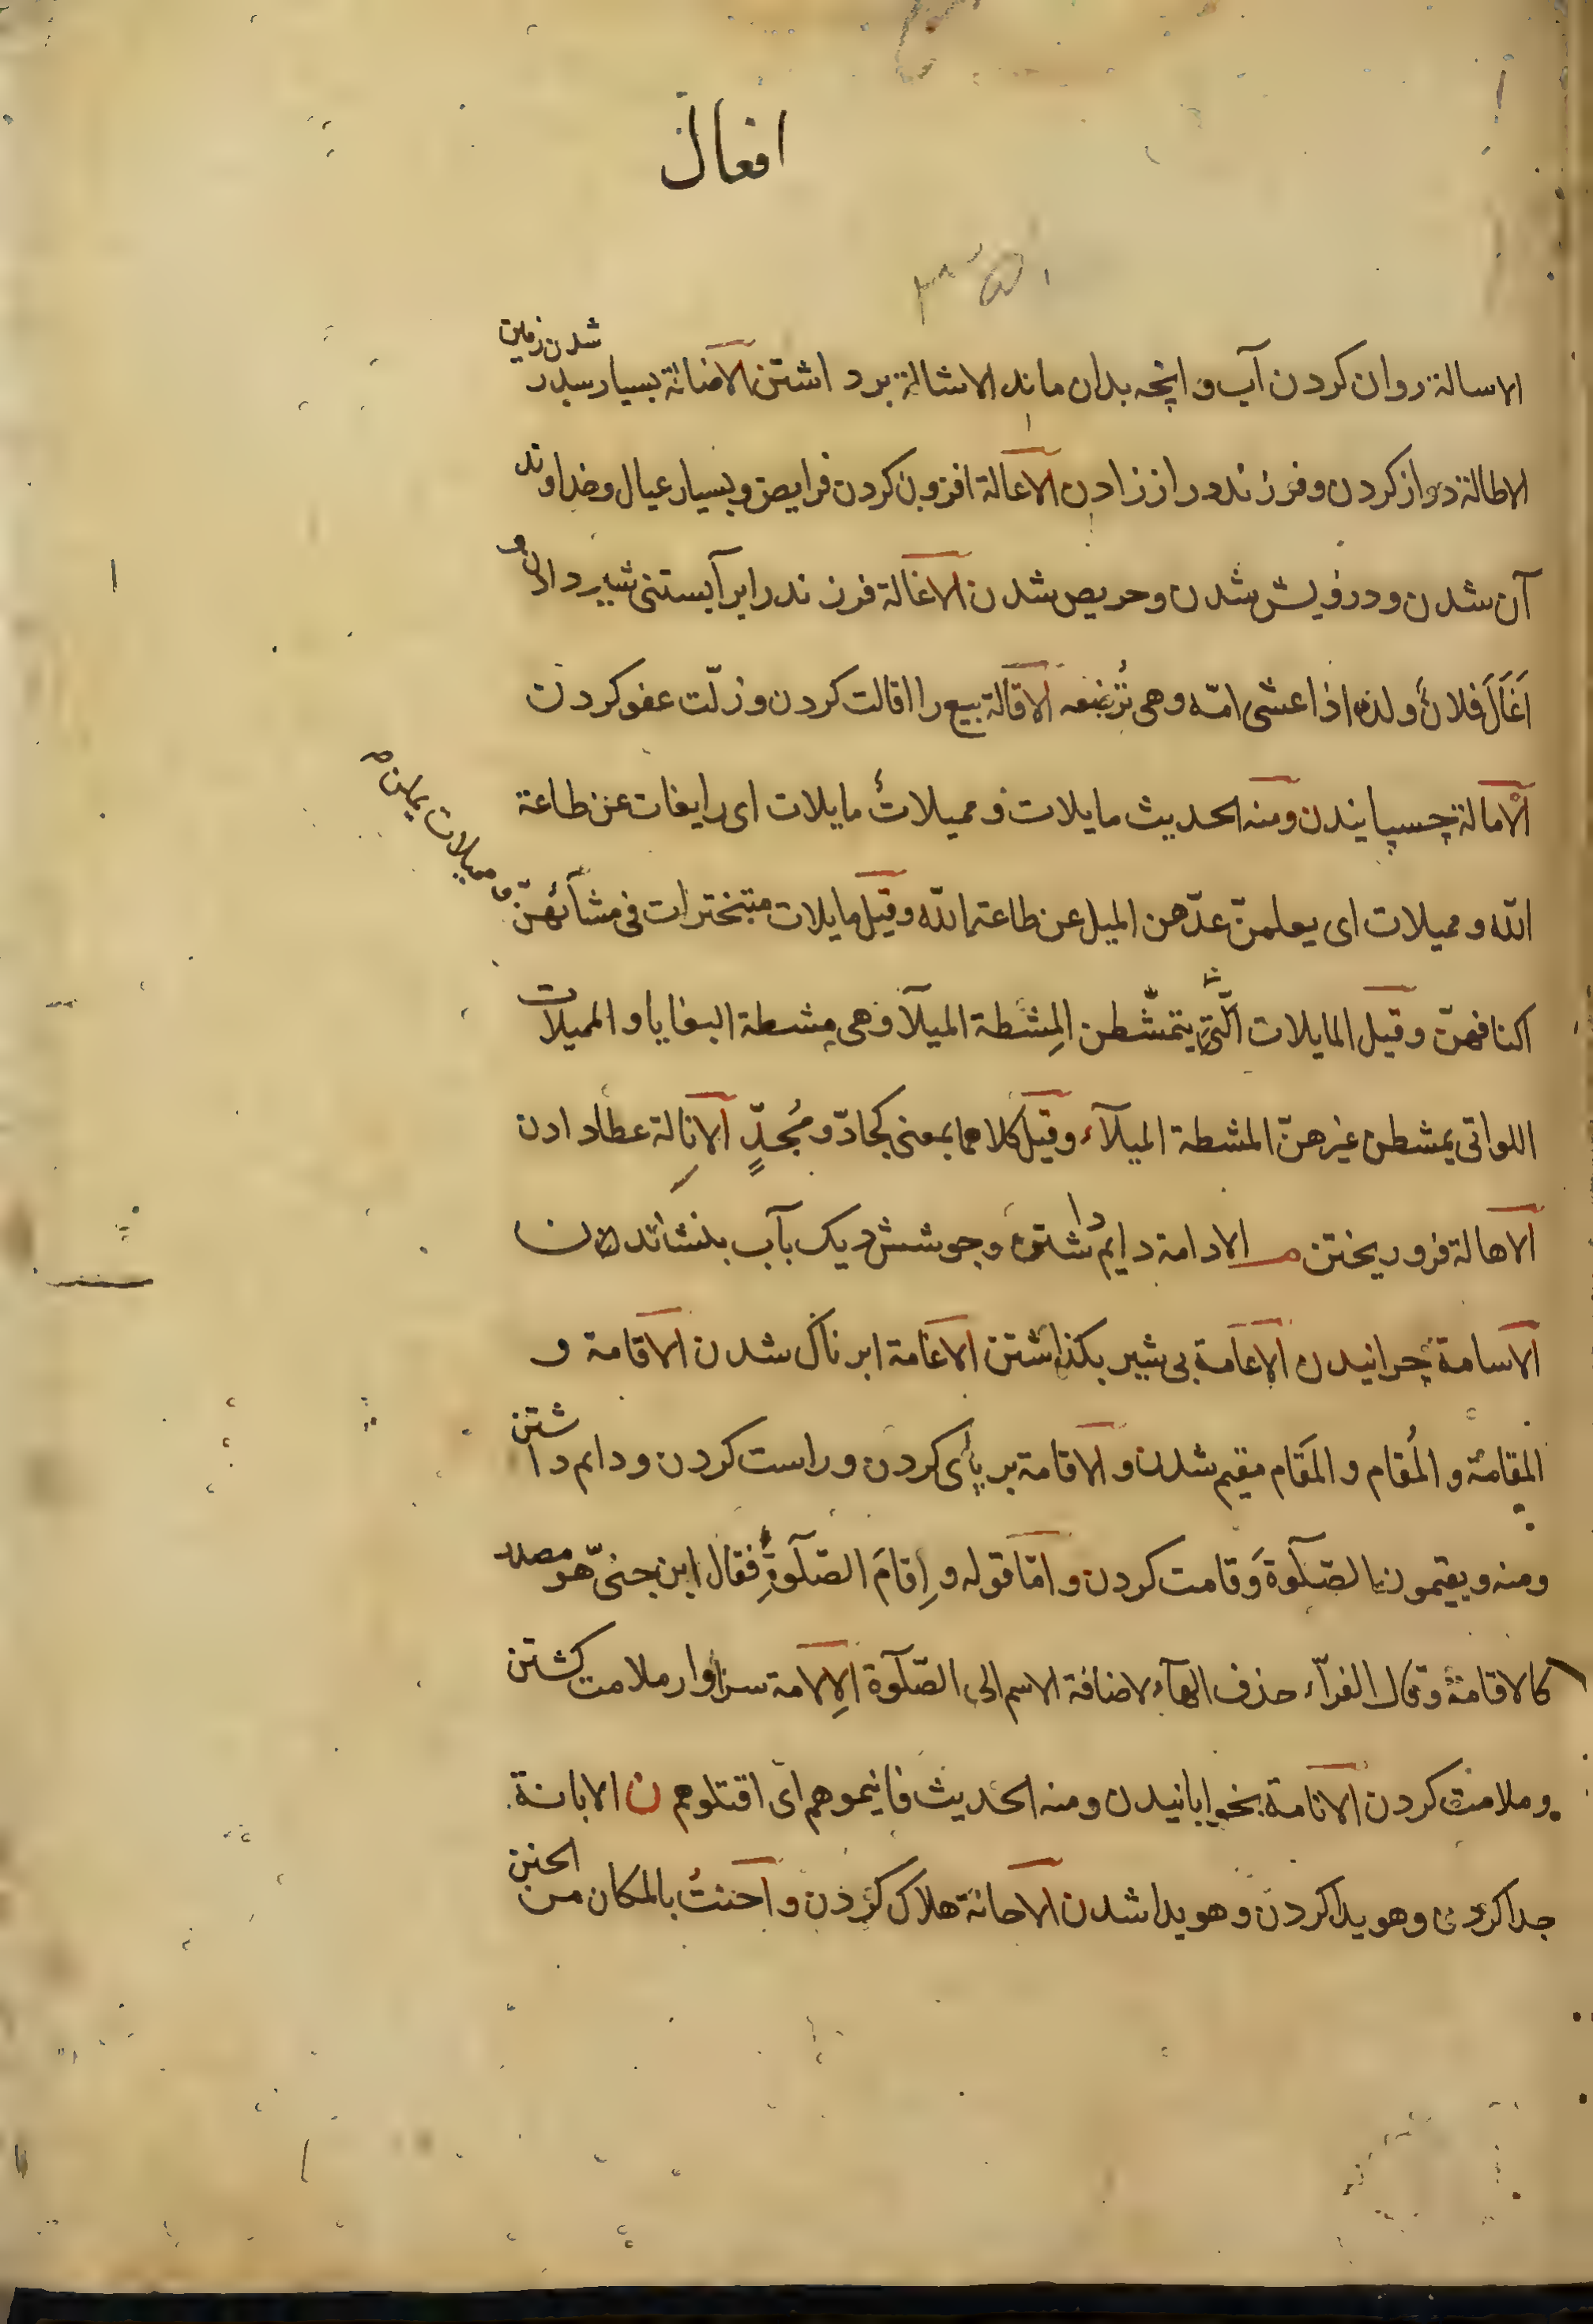 افعال
الاسالة روان کردن آب و انچه بدان ماند الاشالة برداشتن الاضالة بسیار سدر شدن زمین
الاطالة دراز کردن و فرزند دراز زادن الاعالة افزون کردن فرایض و بسیار عیال و خداوند
آن شدن و درویش شدن و حریص شدن الاغالة فرزند را بر آبستنی شیر دادن و
اَغَالَ فلانٌ ولده اذا غشی امّه و هی تُرْضِعه الاقالة بیع را اقالت کردن و زلّت عفو کردن
الامالة چسپانیدن و منه الحدیث مایلات و ممیلاتٌ مایلات ای زایغات عن طاعة
الله و ممیلات ای یعلمنّ غیرهن المیل عن طاعة الله و قیل مایلات متبخترات فی مشیهنّ و ممیلات یملن
اکنافهنّ و قیل المایلات الّتی یتمشّطن المِشْطة المیلآ و هی مِشطة البغایا و الممیلات
اللواتی یمشطن غیرهنّ المشطة المیلآء و قیل کلاهما بمعنی کجادّ و مُجِدٍّ الانالة عطا دادن
الاهالة فرو ریختن م الادامة دایم داشتن و جوشش دیک بآب بنشاندن
الاسامة چرانیدن الاعامة بی شیر بکذاشتن الاغامة ابرناک شدن الاقامة و
المقامة و المُقام و المَقام مقیم شدن و الاقامة بر پای کردن و راست کردن و دایم داشتن
و منه و یقیمون الصّلوةَ و قامت کردن و امّا قوله و اِقامَ الصّلوةِ فقال ابن جنیّ هو مصدر
کالاقامة و قال الفرّآء حذف الهآء لاضافة الاسم الی الصّلوة الاِلامة سزاوار ملامت کشتن
و ملامت کردن الانامة بخوابانیدن و منه الحدیث فانیموهم ای اقتلوهم ن الابانة
جدا کردن و هویدا کردن و هویدا شدن الاحانة هلاک کردن و اَحنتُ بالمکان من الحین